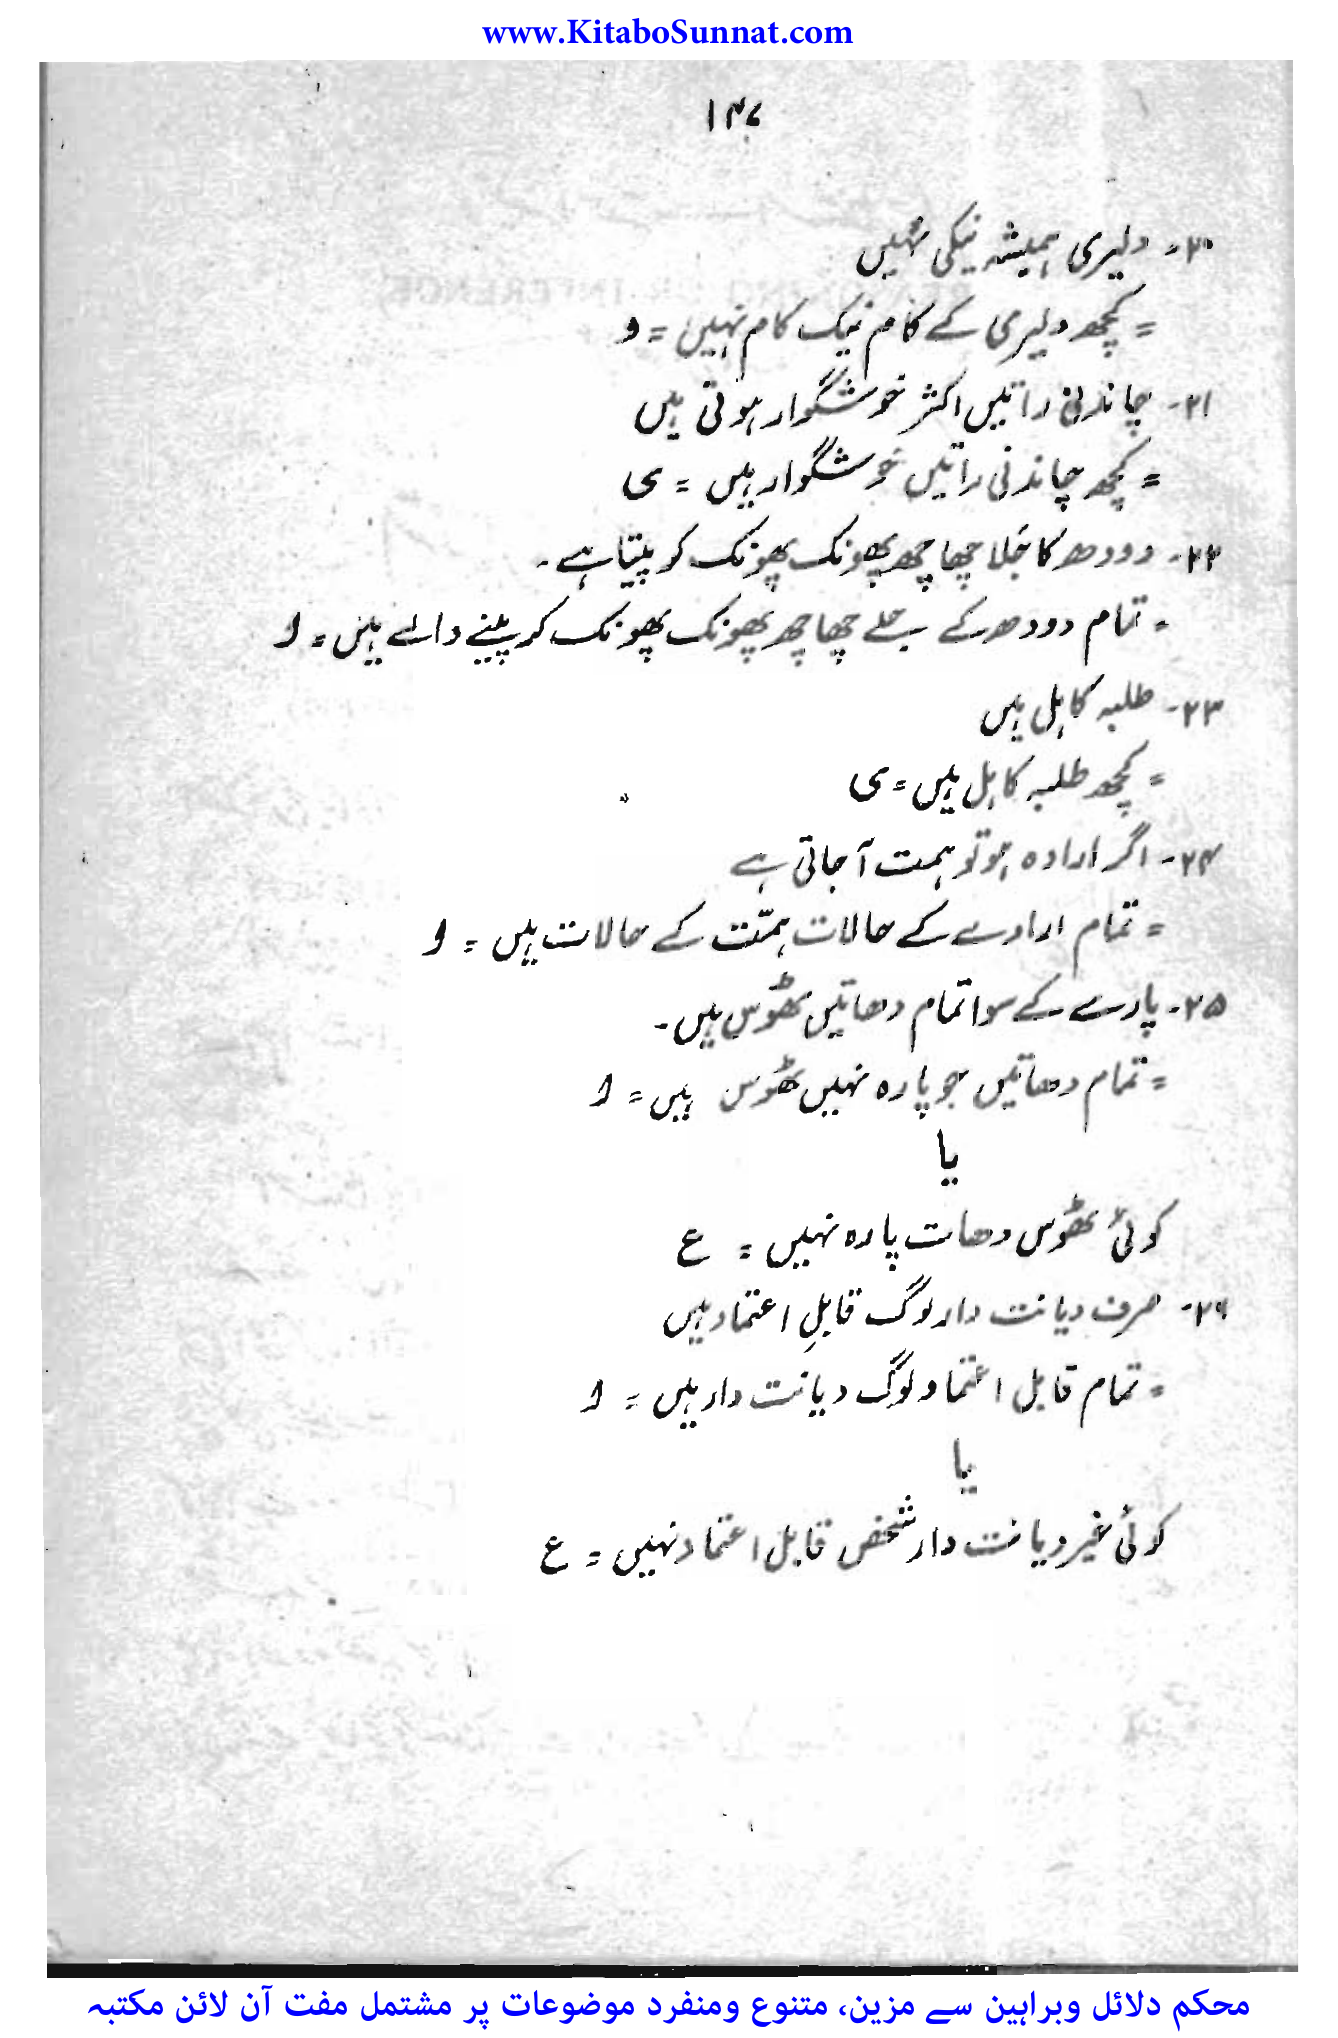 www.KitaboSunnat.com
۱۴۷
۲۰۔ دلیری ہمیشہ نیکی نہیں
= کچھ دلیری کے کام نیک کام نہیں = و
۲۱۔ چاندنی راتیں اکثر خوشگوار ہوتی ہیں
= کچھ چاندنی راتیں خوشگوار ہیں = ی
۲۲۔ دودھ کا جَلا چھاچھ پھونک پھونک کر پیتا ہے۔
= تمام دودھ کے جلے چھاچھ پھونک پھونک کر پینے والے ہیں = ا
۲۳۔ طلبہ کاہل ہیں
= کچھ طلبہ کاہل ہیں = ی
۲۴۔ اگر ارادہ ہو تو ہمت آ جاتی ہے
= تمام ارادے کے حالات ہمّت کے حالات ہیں = ا
۲۵۔ پارے کے سوا تمام دھاتیں ٹھوس ہیں۔
= تمام دھاتیں جو پارہ نہیں ٹھوس ہیں = ا
یا
کوئی ٹھوس دھات پارہ نہیں = ع
۲۶۔ صرف دیانت دار لوگ قابلِ اعتماد ہیں
= تمام قابل اعتماد لوگ دیانت دار ہیں = ا
یا
کوئی غیر دیانت دار شخص قابل اعتماد نہیں = ع
محکم دلائل وبراہین سے مزین، متنوع ومنفرد موضوعات پر مشتمل مفت آن لائن مکتبہ